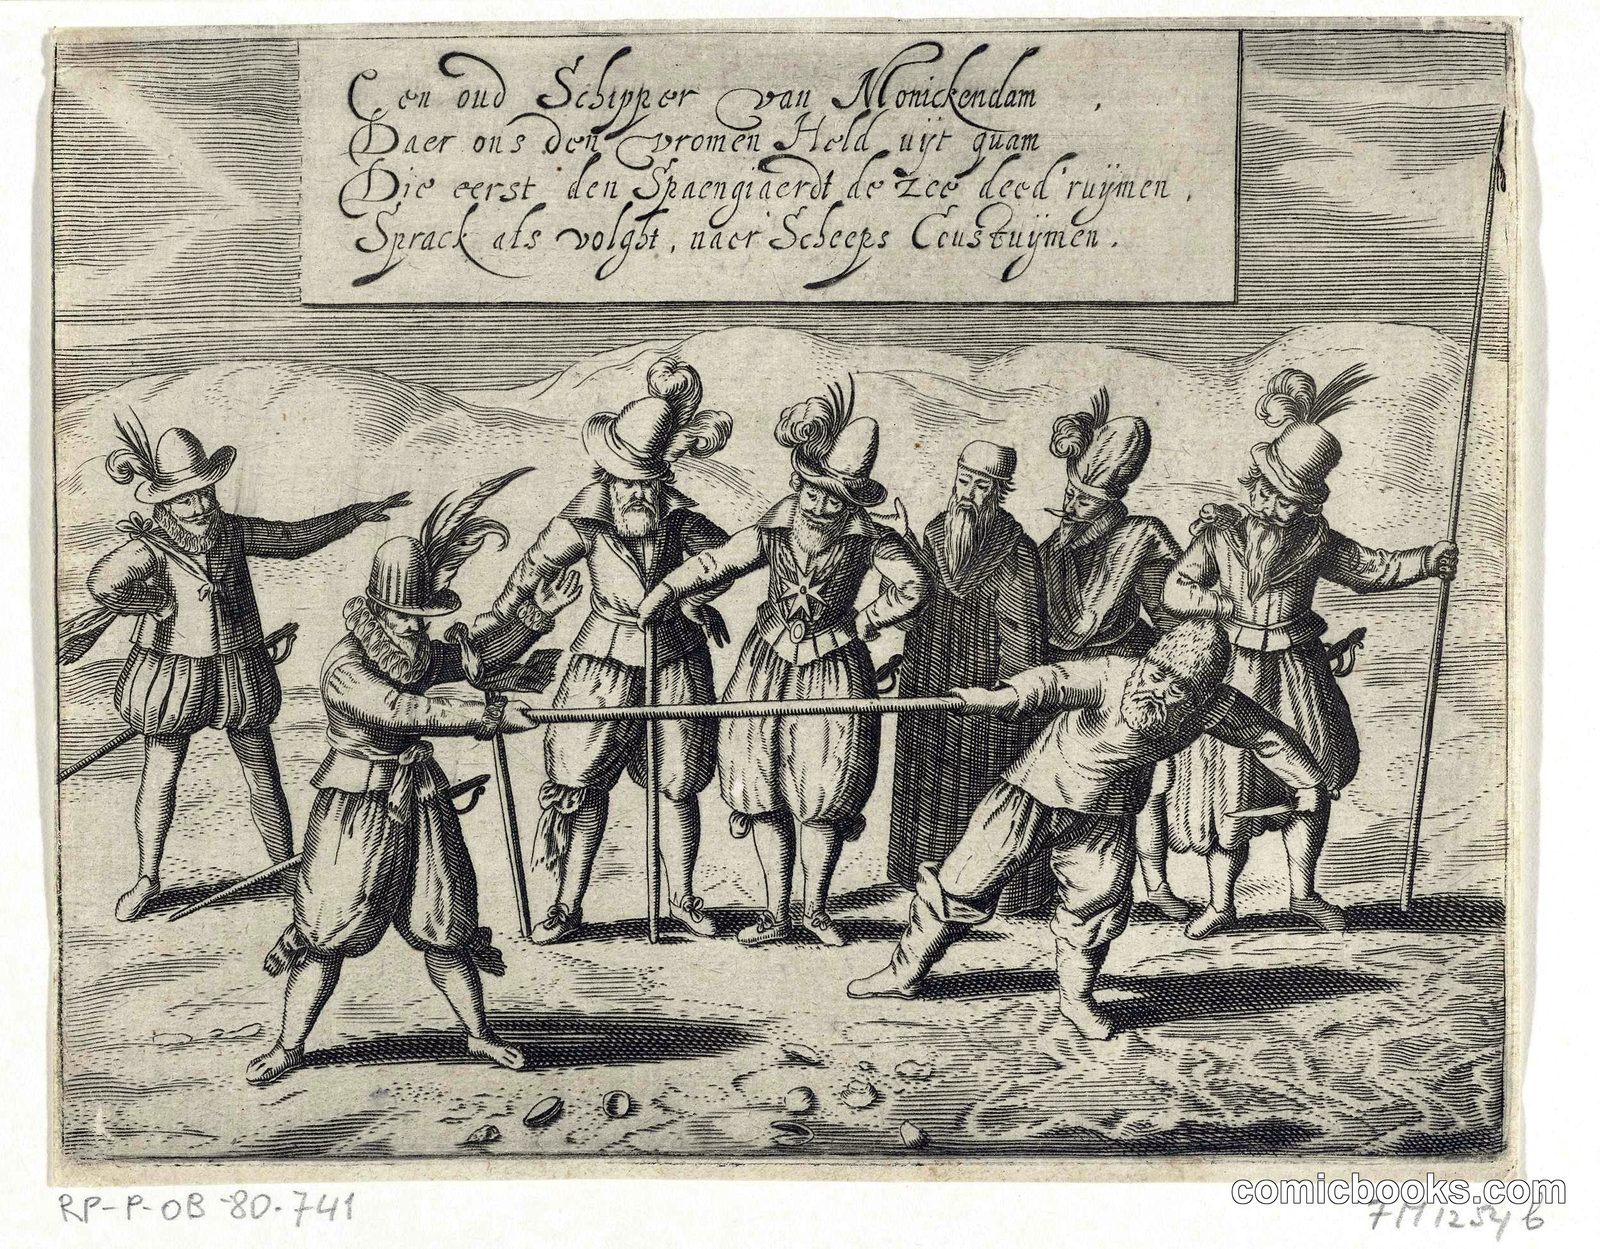 Een oud Schipper van Monickendam,
Daer ons den vromen Held uijt quam
Die eerst den Spaengiaerdt de Zee deed ruijmen,
Sprack als volght, naer Scheeps Ceustuijmen.
RP-P-OB-80.741
comicbooks.com